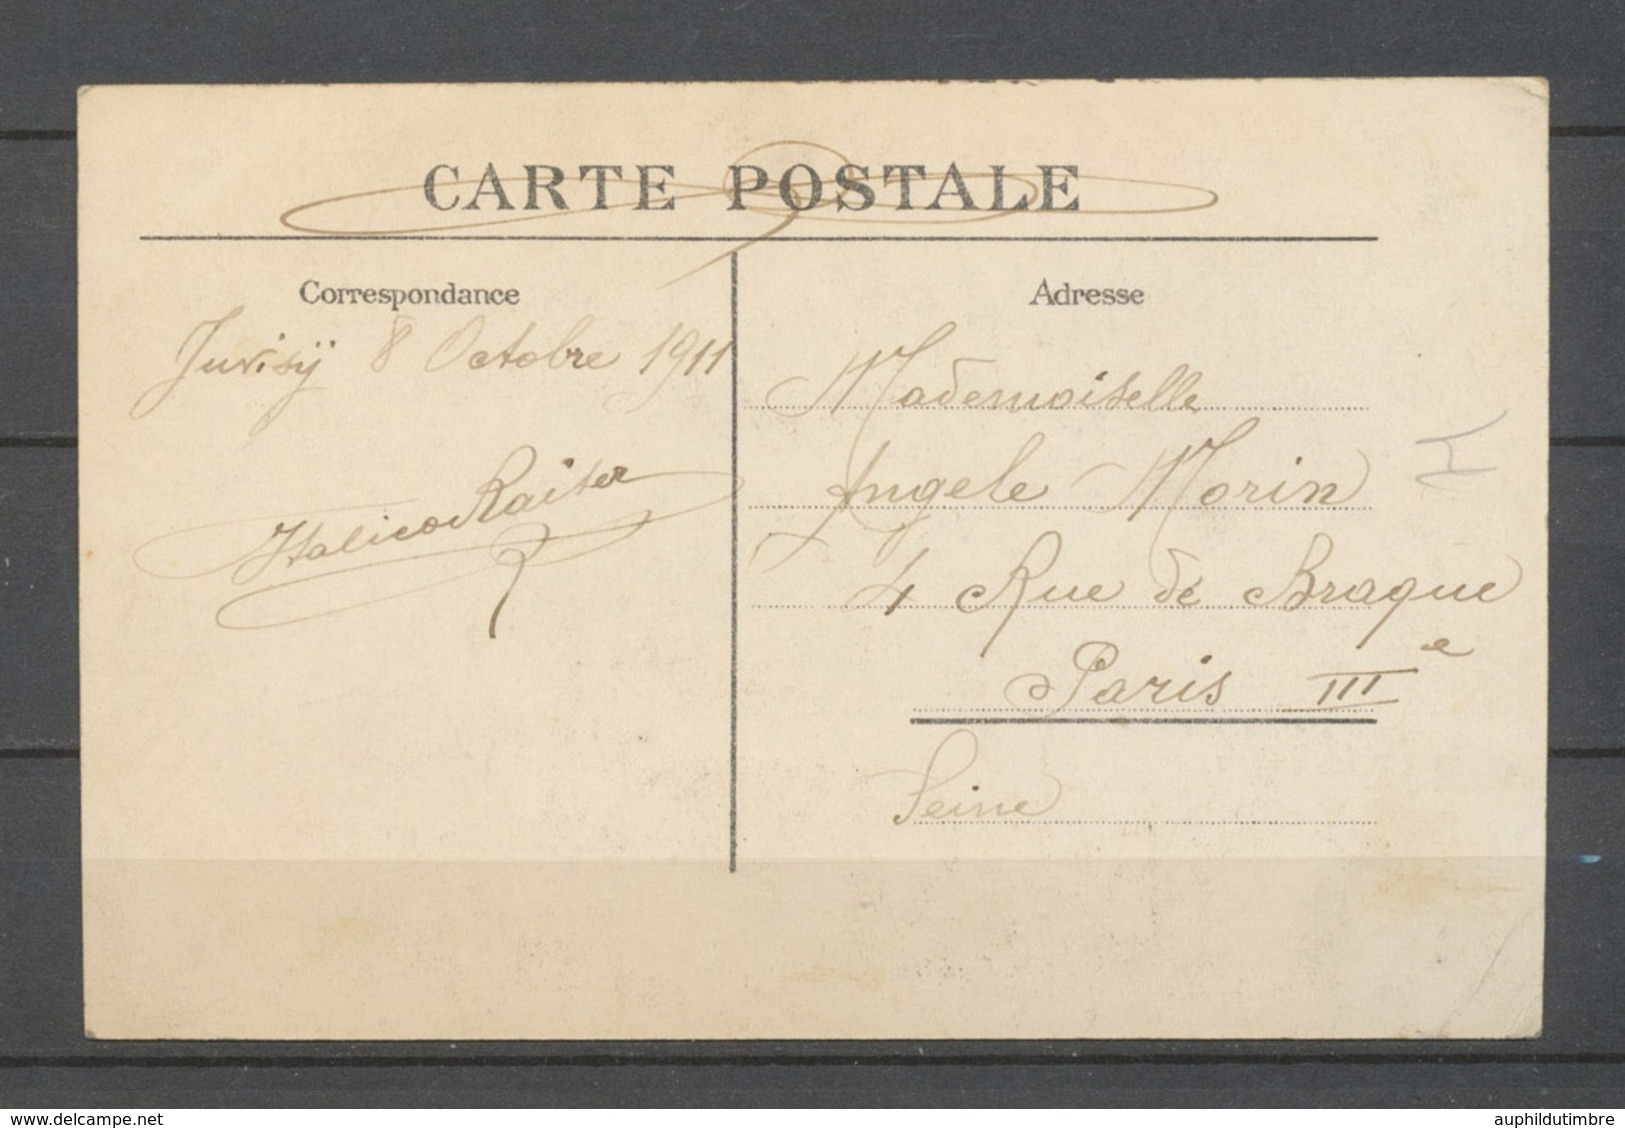 CARTE POSTALE
Correspondance
Adresse
Juvisÿ 8 Octobre 1911
Italico Raiter
Mademoiselle
Angele Morin
4 Rue de Braque
Paris IIIe
Seine
delcampe.net
auphildutimbre